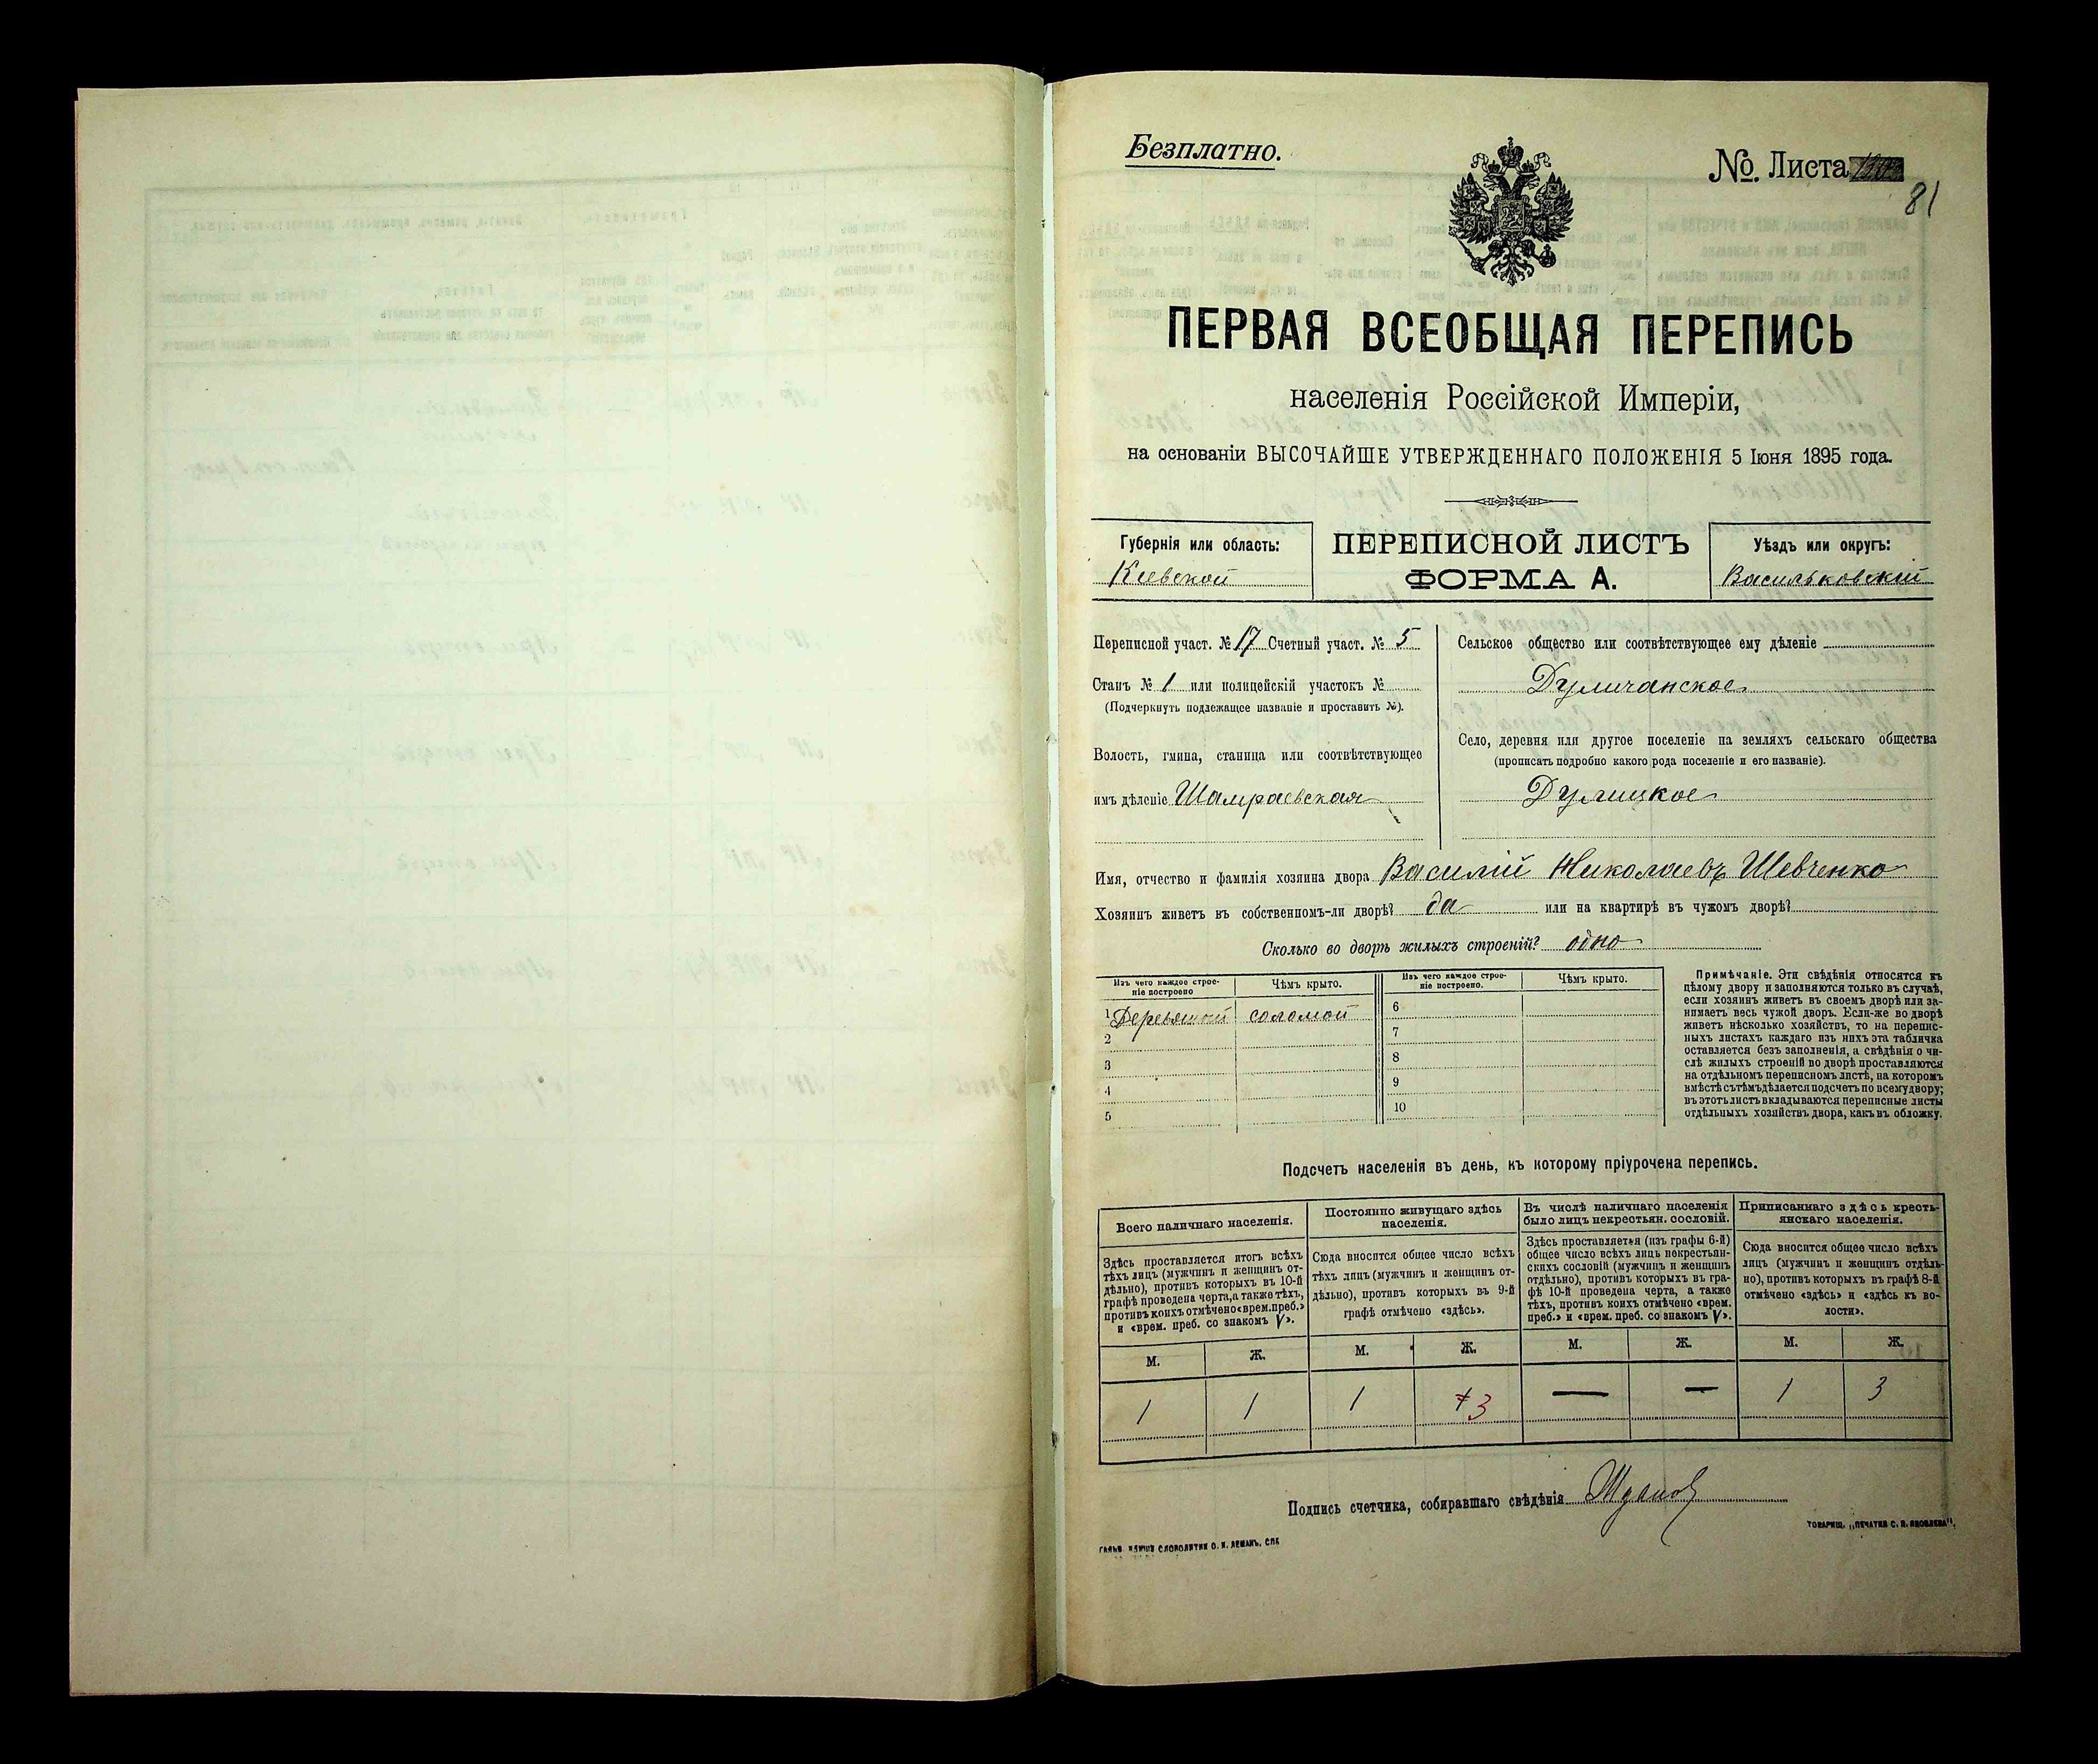 Безплатно.
№. Листа
81
ПЕРВАЯ ВСЕОБЩАЯ ПЕРЕПИСЬ
населенія Россійской Имперіи,
на основаніи ВЫСОЧАЙШЕ УТВЕРЖДЕННАГО ПОЛОЖЕНІЯ 5 Іюня 1895 года.
Губернія или область:
Киевской
ПЕРЕПИСНОЙ ЛИСТЪ
ФОРМА А.
Уѣздъ или округъ:
Васильковскій
Переписной участ. № 17 Счетный участ. № 5
Станъ № 1 или полицейскій участокъ №
(Подчеркнуть подлежащее названіе и проставить №).
Волость, гмина, станица или соотвѣтствующее
имъ дѣленіе Шамраевская
Сельское общество или соотвѣтствующее ему дѣленіе
Дуличанское
Село, деревня или другое поселеніе на земляхъ сельскаго общества
(прописать подробно какого рода поселеніе и его названіе).
Дулицкое
Имя, отчество и фамилія хозяина двора Василій Николаевъ Шевченко
Хозяинъ живетъ въ собственномъ-ли дворѣ? да или на квартирѣ въ чужомъ дворѣ?
Сколько во дворѣ жилыхъ строеній? одно
Изъ чего каждое строе-
ніе построено
Чѣмъ крыто.
1 соломой
2
3
4
5
Изъ чего каждое строе-
ніе построено.
Чѣмъ крыто.
6
7
8
9
10
Примѣчаніе. Эти свѣдѣнія относятся къ
цѣлому двору и заполняются только въ случаѣ,
если хозяинъ живетъ въ своемъ дворѣ или за-
нимаетъ весь чужой дворъ. Если-же во дворѣ
живетъ нѣсколько хозяйствъ, то на перепис-
ныхъ листахъ каждаго изъ нихъ эта табличка
оставляется безъ заполненія, а свѣдѣнія о чи-
слѣ жилыхъ строеній во дворѣ проставляются
на отдѣльномъ переписномъ листѣ, на которомъ
вмѣстѣ съ тѣмъ дѣлается подсчетъ по всему двору;
въ этотъ листъ вкладываются переписные листы
отдѣльныхъ хозяйствъ двора, какъ въ обложку.
Подсчетъ населенія въ день, къ которому пріурочена перепись.
Всего наличнаго населенія.
Здѣсь проставляется итогъ всѣхъ
тѣхъ лицъ (мужчинъ и женщинъ от-
дѣльно), противъ которыхъ въ 10-й
графѣ проведена черта, а также тѣхъ,
противъ коихъ отмѣчено «врем. преб.»
и «врем. преб. со знакомъ V».
М. Ж.
1 1
Постоянно живущаго здѣсь
населенія.
Сюда вносится общее число всѣхъ
тѣхъ лицъ (мужчинъ и женщинъ от-
дѣльно), противъ которыхъ въ 9-й
графѣ отмѣчено «здѣсь».
М. Ж.
1 3
Въ числѣ наличнаго населенія
было лицъ некрестьян. сословій.
Здѣсь проставляется (изъ графы 6-й)
общее число всѣхъ лицъ некрестьян-
скихъ сословій (мужчинъ и женщинъ
отдѣльно), противъ которыхъ въ гра-
фѣ 10-й проведена черта, а также
тѣхъ, противъ коихъ отмѣчено «врем.
преб.» и «врем. преб. со знакомъ V».
М. Ж.
— —
Приписаннаго здѣсь кресть-
янскаго населенія.
Сюда вносится общее число всѣхъ
лицъ (мужчинъ и женщинъ отдѣль-
но), противъ которыхъ въ графѣ 8-й
отмѣчено «здѣсь» и «здѣсь къ во-
лости».
М. Ж.
1 3
Подпись счетчика, собиравшаго свѣдѣнія
СЛОВОЛИТНИ О. И. ЛЕМАНЪ, СПБ
ТОВАРИЩ. „ПЕЧАТНЯ С. П. ЯКОВЛЕВА".